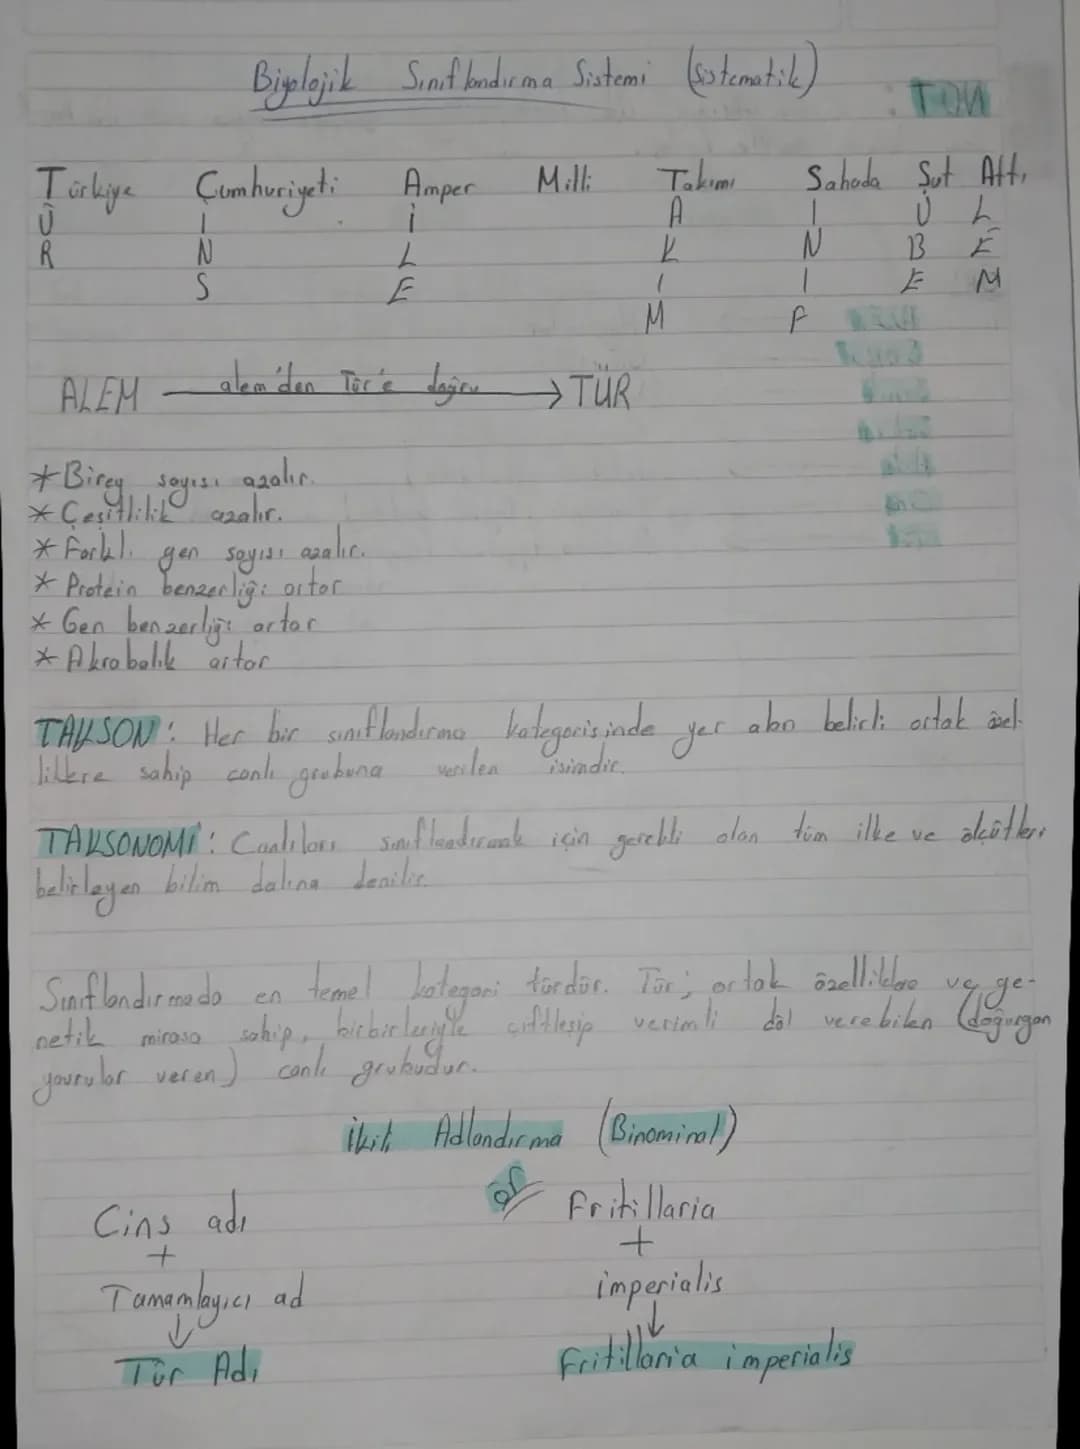 Biyolojik Sınıflandırma Sistemi (Sistematik)
Türkiye Cumhuriyeti Amper Milli Takımı Sahada Şut Attı
Ü İ İ A I U L
R N L K N B E
S E I I E M
M F
ALEM alem'den Tür'e doğru → TÜR
* Birey sayısı azalır.
* Çeşitlilik azalır.
* Farklı gen sayısı azalır.
* Protein benzerliği artar
* Gen benzerliği artar
* Akrabalık artar
TAKSON: Her bir sınıflandırma kategorisinde yer alan belirli ortak özel-
liklere sahip canlı grubuna verilen isimdir.
TAKSONOMİ: Canlıları sınıflandırmak için gerekli olan tüm ilke ve ölçütleri
belirleyen bilim dalına denilir.
Sınıflandırmada en temel kategori türdür. Tür; ortak özelliklere ve ge-
netik mirasa sahip, birbirleriyle çiftleşip verimli döl verebilen (doğurgan
yavrular veren) canlı grubudur.
İkili Adlandırma (Binominal)
Cins adı ör Fritillaria
+ +
Tamamlayıcı ad imperialis
↓ ↓
Tür Adı Fritillaria imperialis